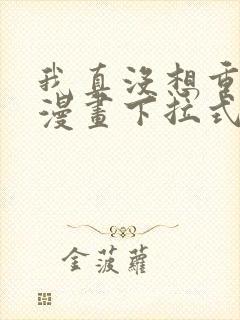 我真沒想重
漫畫下拉式
金菠蘿